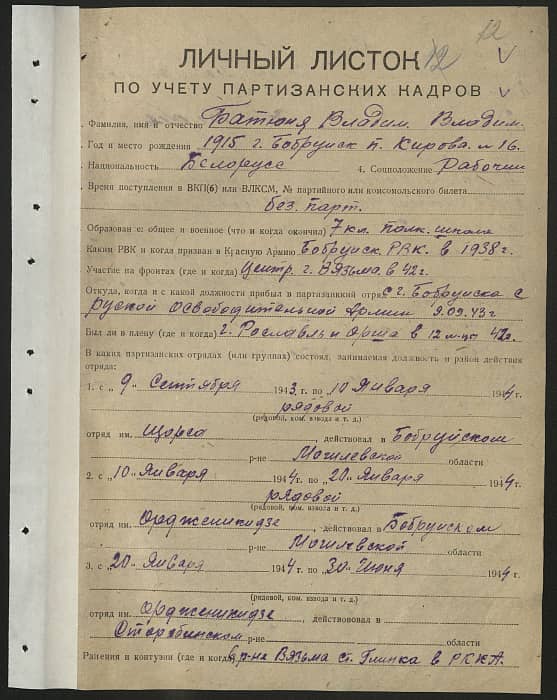 12
ЛИЧНЫЙ ЛИСТОК 12
ПО УЧЕТУ ПАРТИЗАНСКИХ КАДРОВ
. Фамилия, имя и отчество Батюня Владим. Владим.
. Год и место рождения 1915 г. Бобруйск п. Кирова. л 16.
. Национальность Белорусс 4. Соцположение Рабочий
. Время поступления в ВКП(б) или ВЛКСМ, № партийного или комсомольского билета
без. парт.
. Образован е: общее и военное (что и когда окончил) 7 кл. полк. школе
Каким РВК и когда призван в Красную Армию Бобруйск. РВК. в 1938 г.
Участие на фронтах (где и когда) Центр. г. Вязьма в 42 г.
Откуда, когда и с какой должности прибыл в партизанский отряд С г. Бобруйска с
руской освободительной Армии 9.09.43 г
Был ли в плену (где и когда) г. Рославль и Орша в 42 г.
В каких партизанских отрядах (или группах) состоял, занимаемая должность и район действия
отряда:
1. с „ 9 „ Сентября 1943. г. по „ 10 Января 1944 г.
рядовой
(рядовой, ком. взвода и т. д.)
отряд им. Щорса , действовал в Бобруйском
р-не Могилевской области
2. с „10 „ Января 1944 г. по „20„ Января 1944 г.
рядовой
(рядовой, ком. взвода и т. д.)
отряд им. Ордженикидзе , действовал в Бобруйском
р-не Могилевской области
3. с „20 „ Января 1944 г. по „ 30„ Июня 1944 г.
(рядовой, ком. взвода и т. д.)
отряд им. Ордженикидзе , действовал в
р-не области
Ранения и контузии (где и когда) в р-не Вязьма ст. Глинка в РККА.